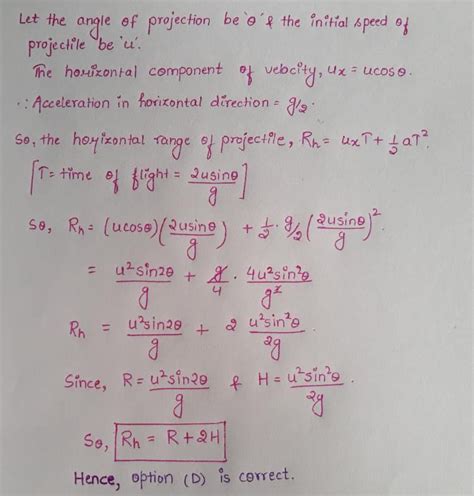 Let the angle of projection be 'θ' & the initial speed of
projectile be 'u'.
The horizontal component of velocity, ux = ucosθ.
∴ Acceleration in horizontal direction = g/2.
So, the horizontal range of projectile, Rh = uxT + 1/2 aT².
[T = time of flight = 2usinθ/g]
So, Rh = (ucosθ)(2usinθ/g) + 1/2 · g/2 (2usinθ/g)².
= u²sin2θ/g + g/4 · 4u²sin²θ/g²
Rh = u²sin2θ/g + 2 u²sin²θ/2g.
Since, R = u²sin2θ/g & H = u²sin²θ/2g.
So, Rh = R + 2H
Hence, option (D) is correct.